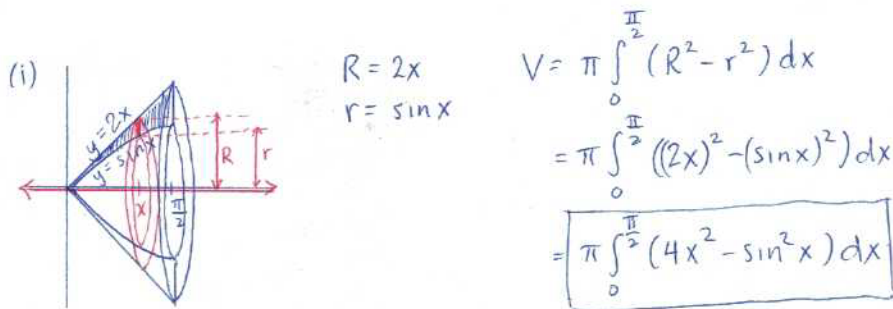 (i)
y = 2x
y = sin x
x
π/2
R
r
R = 2x
r = sin x
V = π ∫₀^(π/2) (R² - r²) dx
= π ∫₀^(π/2) ((2x)² - (sin x)²) dx
= π ∫₀^(π/2) (4x² - sin² x) dx